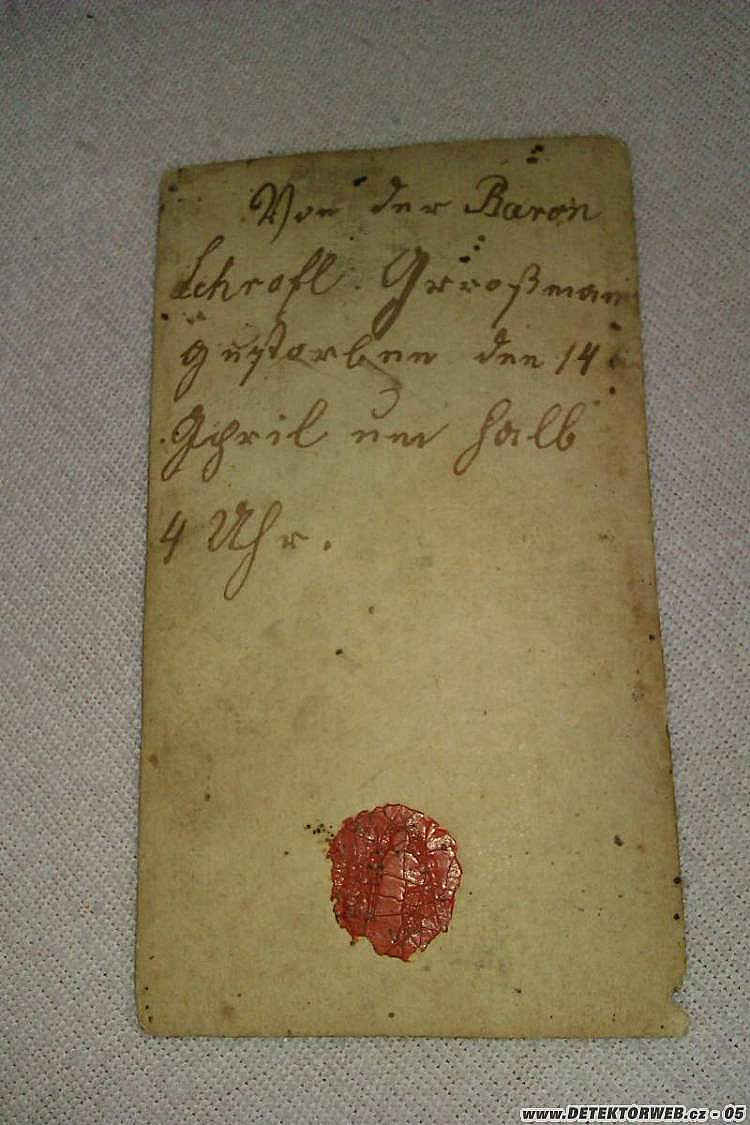 Von der Baron
Schrofl. Grroßman
gustorben den 14
April um halb
4 Uhr.
www.DETEKTORWEB.cz - 05